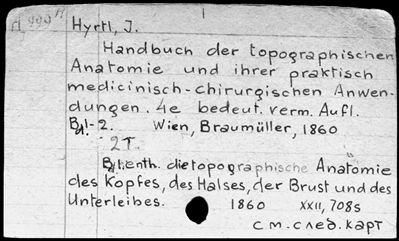 Hyrtl, J.
Handbuch der topographischen
Anatomie und ihrer praktisch
medicinisch-chirurgischen Anwen-
dungen. 4e bedeut. verm. Aufl.
Bd. 1-2. Wien, Braumüller, 1860
2T.
Bd. 1. enth. die topographische Anatomie
des Kopfes, des Halses, der Brust und des
Unterleibes. 1860 XXII, 708s
см. след. карт